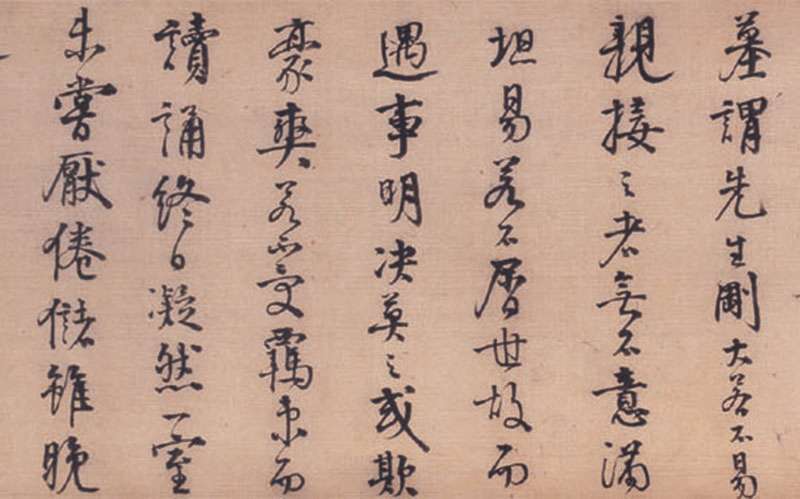 墓謂先生剛大若不易
親接之者無不意滿
坦易若不屑世故而
遇事明决莫之或欺
豪爽若不受羈束而
讀誦終日凝然一室
未嘗厭倦儲雖晚